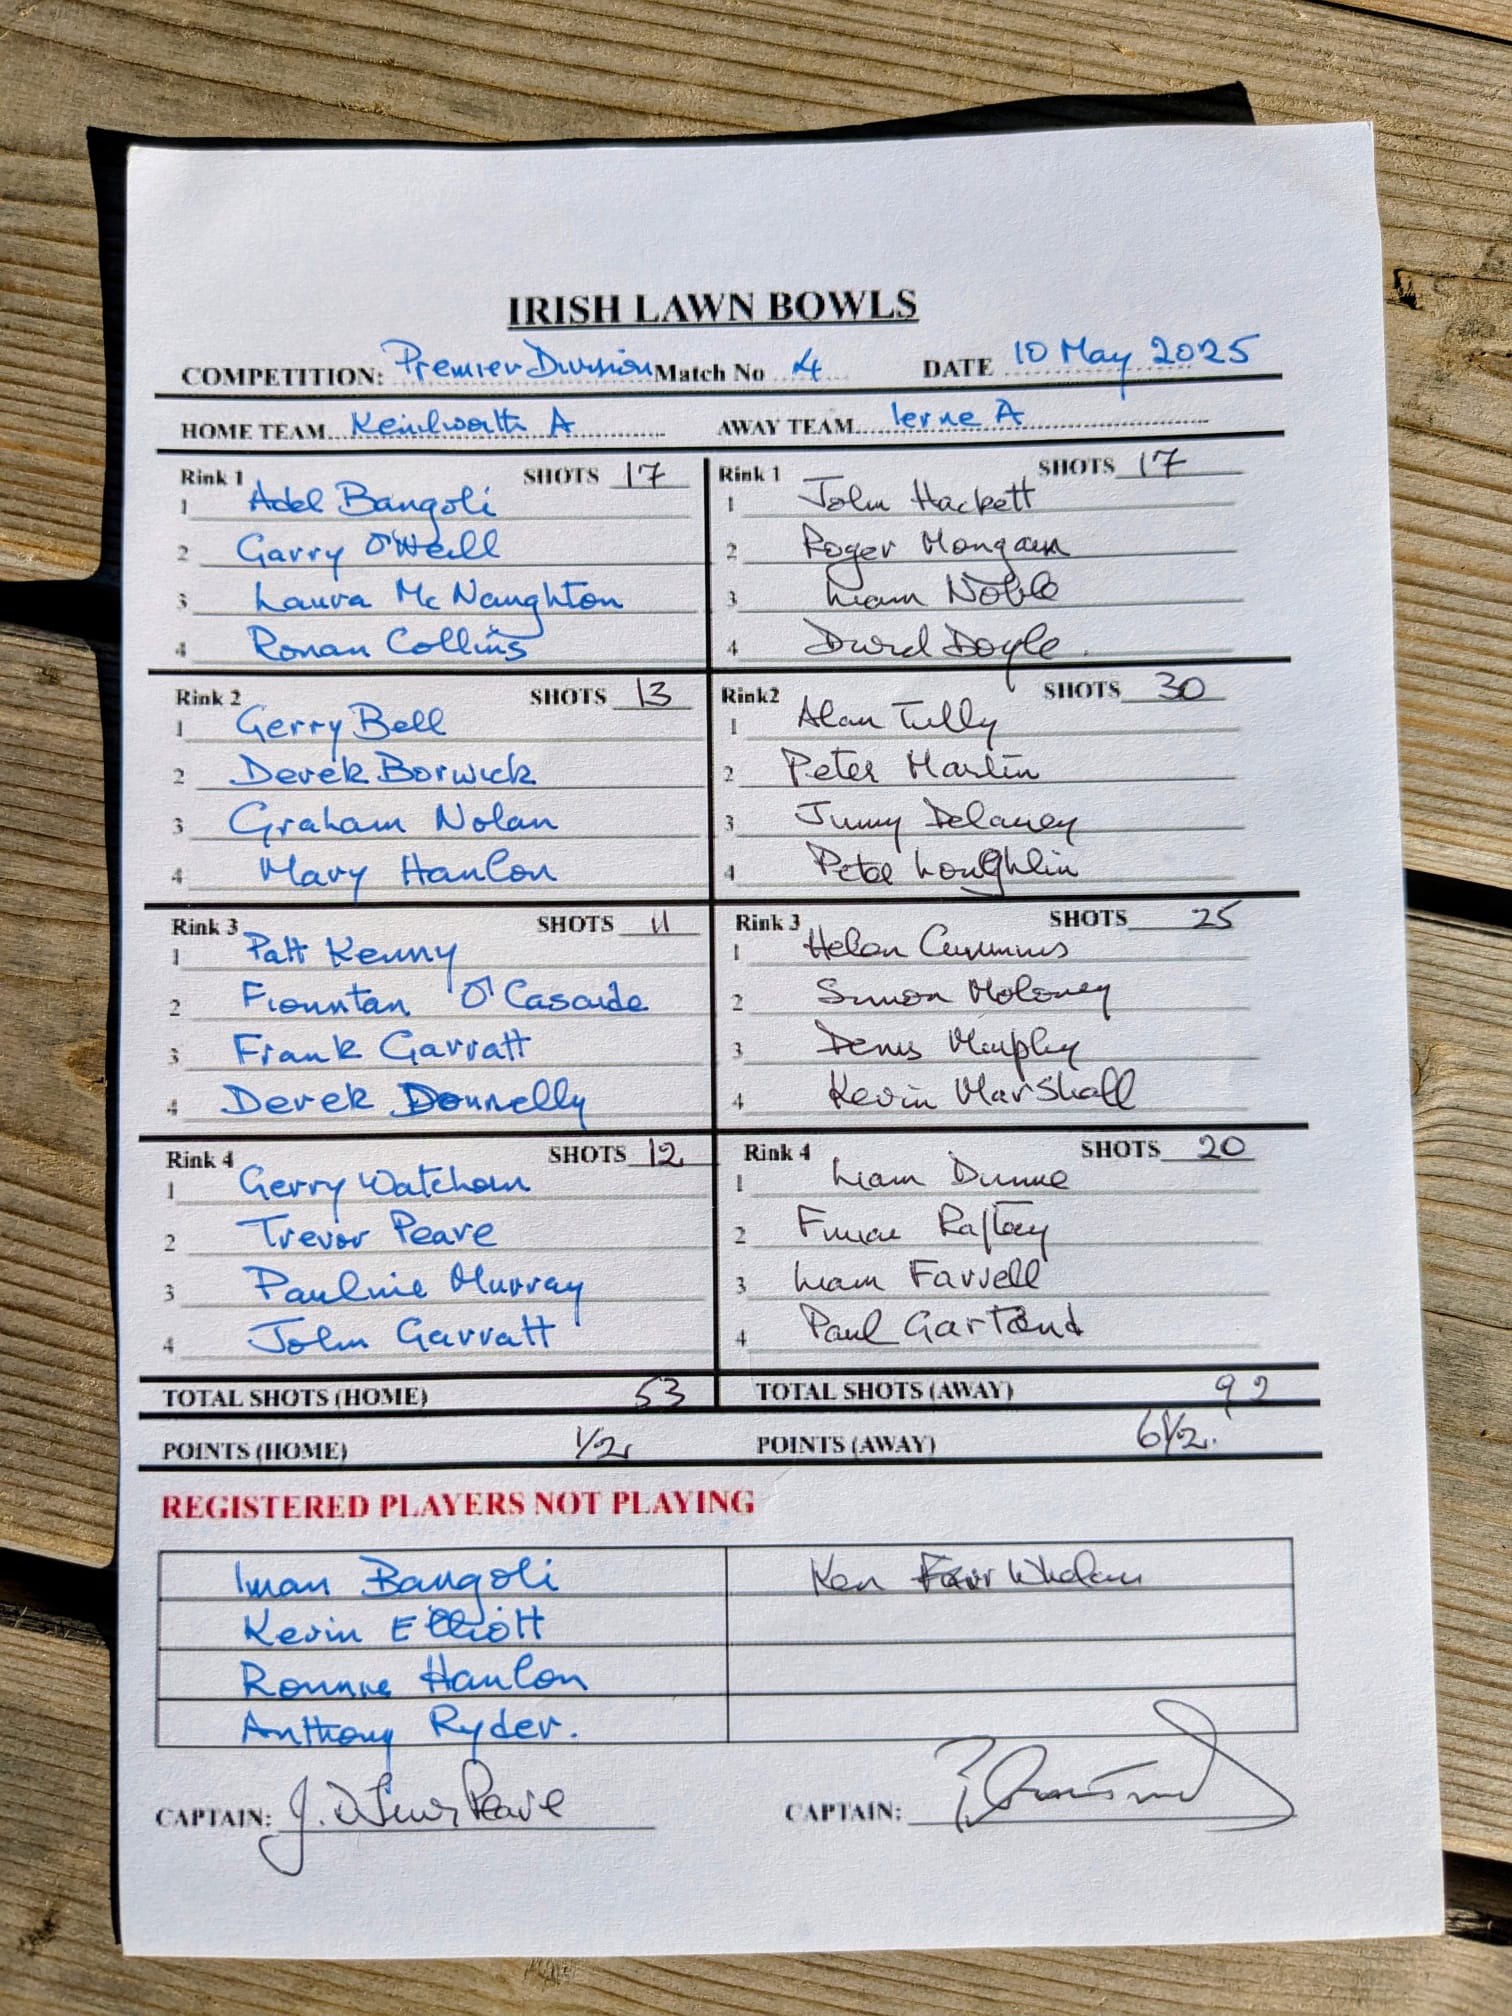 IRISH LAWN BOWLS
COMPETITION: Premier Division Match No 4 DATE 10 May 2025
HOME TEAM Kenilworth A AWAY TEAM Ierne A
Rink 1 SHOTS 17
1 Adel Bangoli
2 Garry O'Neill
3 Laura Mc Naughton
4 Ronan Collins
Rink 1 SHOTS 17
1 John Hackett
2 Roger Mongan
3 Liam Noble
4 David Doyle
Rink 2 SHOTS 13
1 Gerry Bell
2 Derek Borwick
3 Graham Nolan
4 Mary Hanlon
Rink2 SHOTS 30
1 Alan Tully
2 Peter Martin
3 Jimmy Delaney
4 Pete Loughlin
Rink 3 SHOTS 11
1 Patt Kenny
2 O'Casaide
3 Frank Garratt
4 Derek Donnelly
Rink 3 SHOTS 25
1 Helen Cummins
2 Simon Moloney
3 Denis Murphy
4 Kevin Marshall
Rink 4 SHOTS 12
1 Gerry Watcham
2 Trevor Peare
3 Pauline Murray
4 John Garratt
Rink 4 SHOTS 20
1 Liam Dunne
2 Raftery
3 Liam Farrell
4 Paul Gartland
TOTAL SHOTS (HOME) 53 TOTAL SHOTS (AWAY) 92
POINTS (HOME) 1/2 POINTS (AWAY) 6 1/2.
REGISTERED PLAYERS NOT PLAYING
Iman Bangoli Ken Whelan
Kevin Elliott
Ronnie Hanlon
Anthony Ryder.
CAPTAIN: J. Peare CAPTAIN: